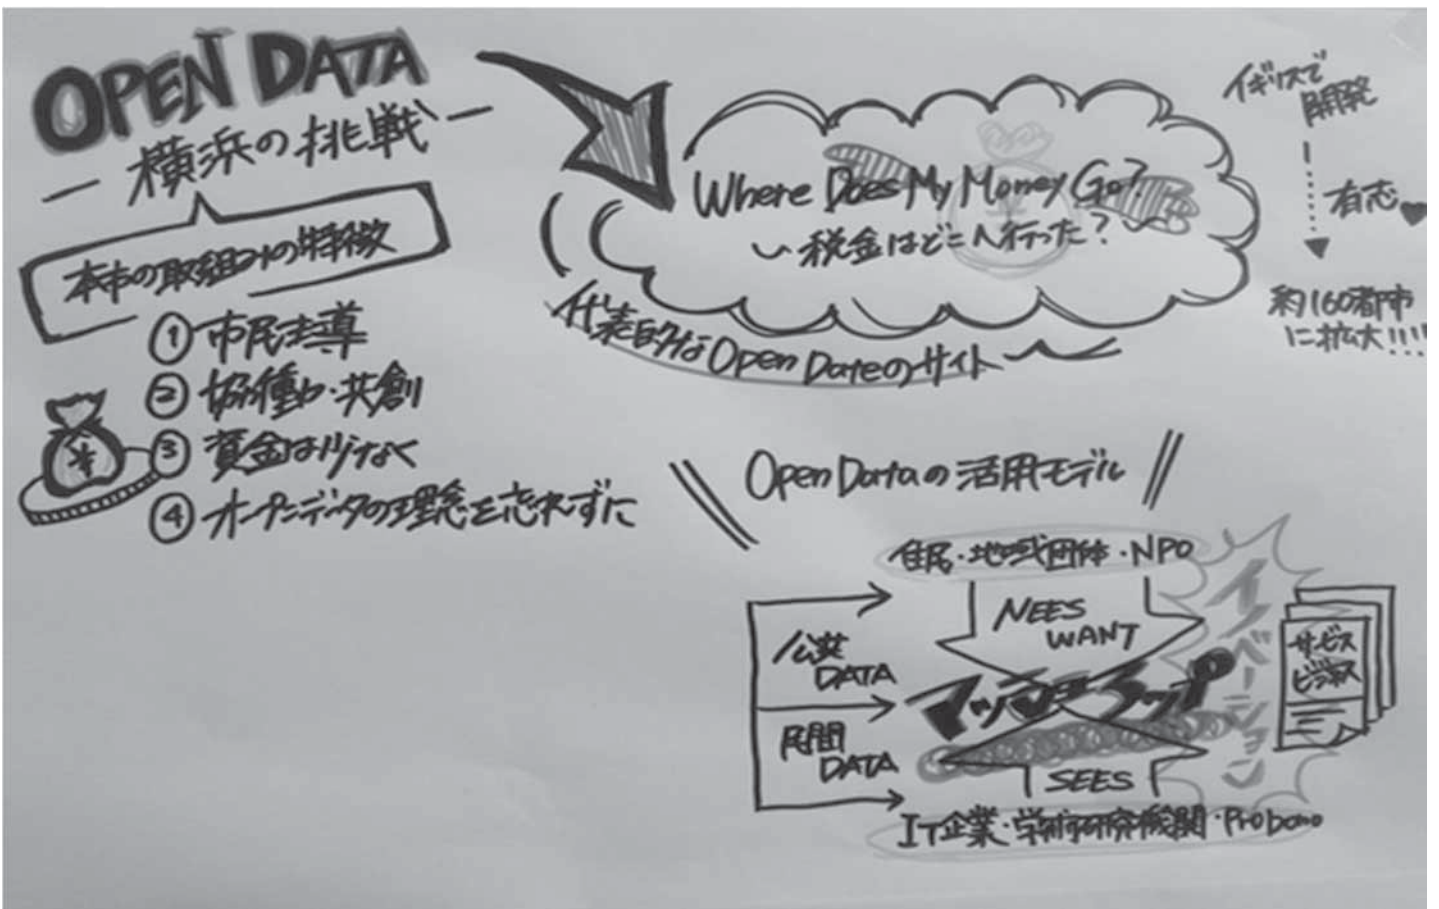 OPEN DATA
― 横浜の挑戦 ―
本市の取組みの特徴
① 市民主導
② 協働・共創
③ 資金は少なく
④ オープンデータの理念を忘れずに
¥
Where Does My Money Go?
〜税金はどこへ行った?〜
代表的なOpen Dateのサイト
イギリスで
開発
有志♥
約160都市
に拡大!!!!
Open Dataの活用モデル
住民・地域団体・NPO
NEES
WANT
公共
DATA
マッシュアップ
民間
DATA
SEES
IT企業・学術研究機関・Probono
イノベーション
サービス
ビジネス